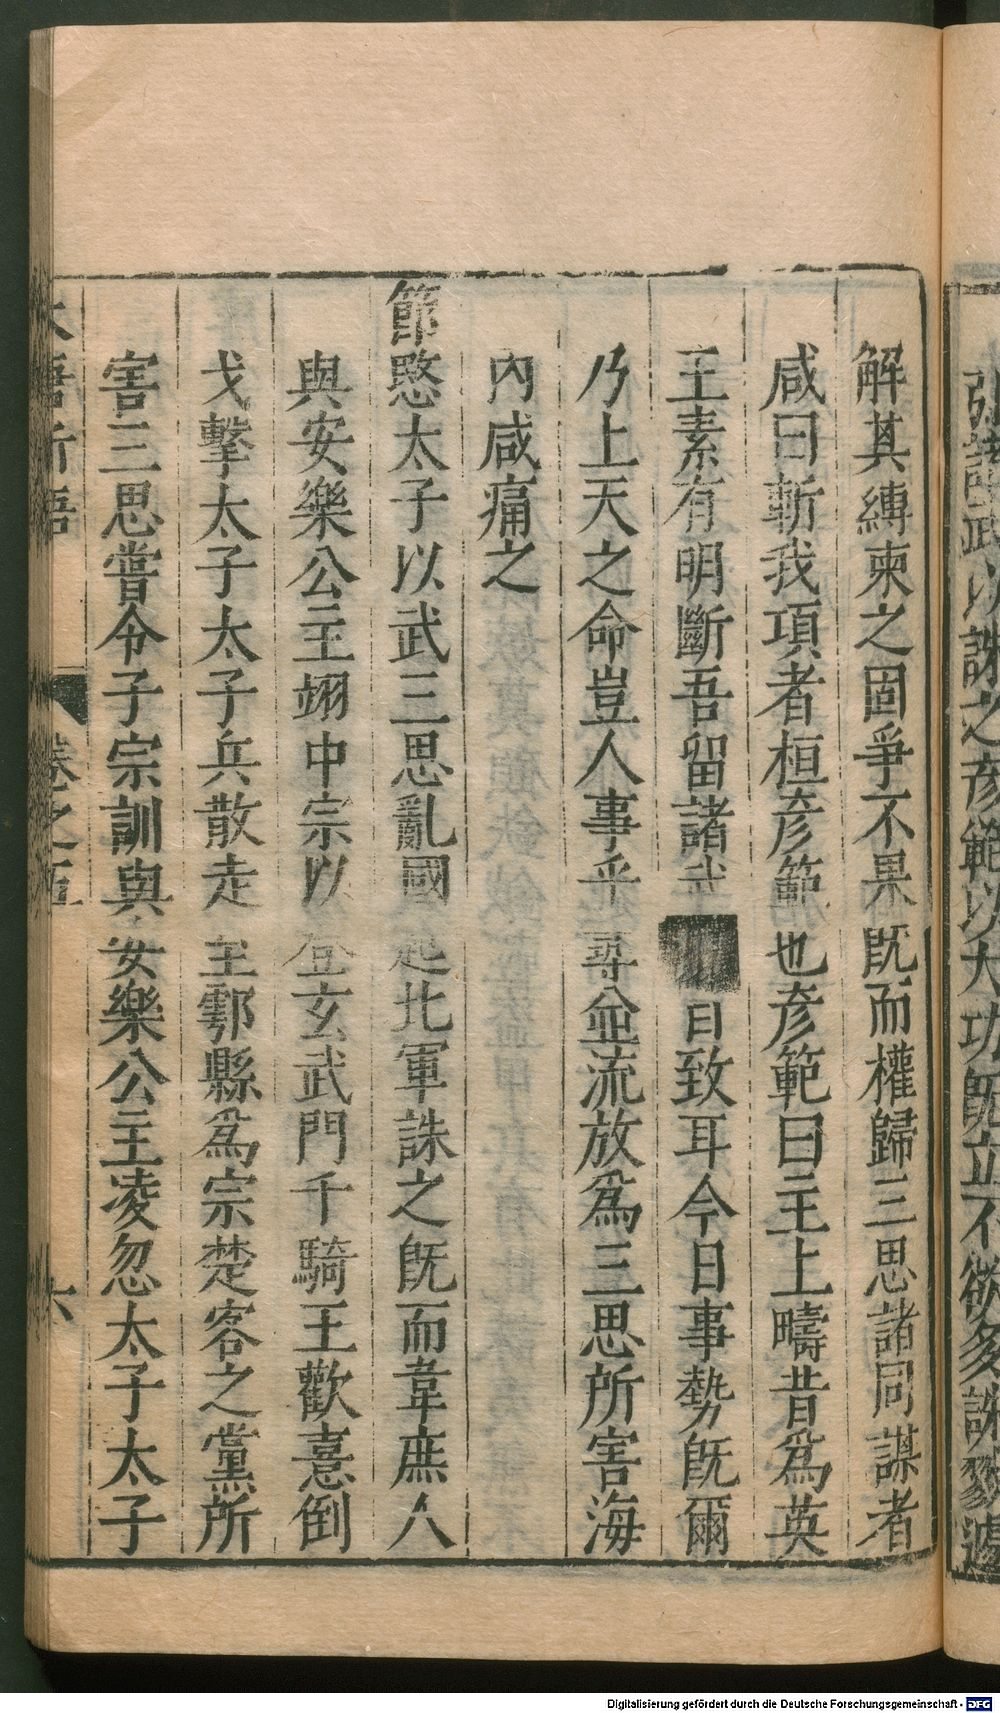 弘諸武以誅之彥範以大功旣立不欲多誅戮遽
解其縛柬之固爭不果旣而權歸三思諸同謀者
咸曰斬我項者桓彥範也彥範曰主上疇昔為英
王素有明斷吾留諸武 自致耳今日事勢旣爾
乃上天之命豈人事乎尋並流放為三思所害海
內咸痛之
節愍太子以武三思亂國起北軍誅之旣而韋庶人
與安樂公主翊中宗以登玄武門千騎王歡憙倒
戈擊太子太子兵散走至鄠縣為宗楚客之黨所
害三思嘗令子宗訓與安樂公主凌忽太子太子
大唐新語 卷之五 六
Digitalisierung gefördert durch die Deutsche Forschungsgemeinschaft - DFG